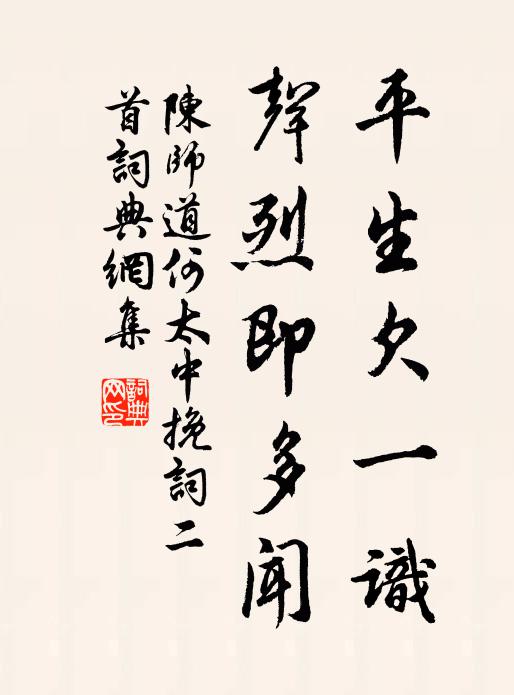 平生欠一識
聲烈即多聞
陳師道何太中挽詞二
首詞典網集
詞典網印